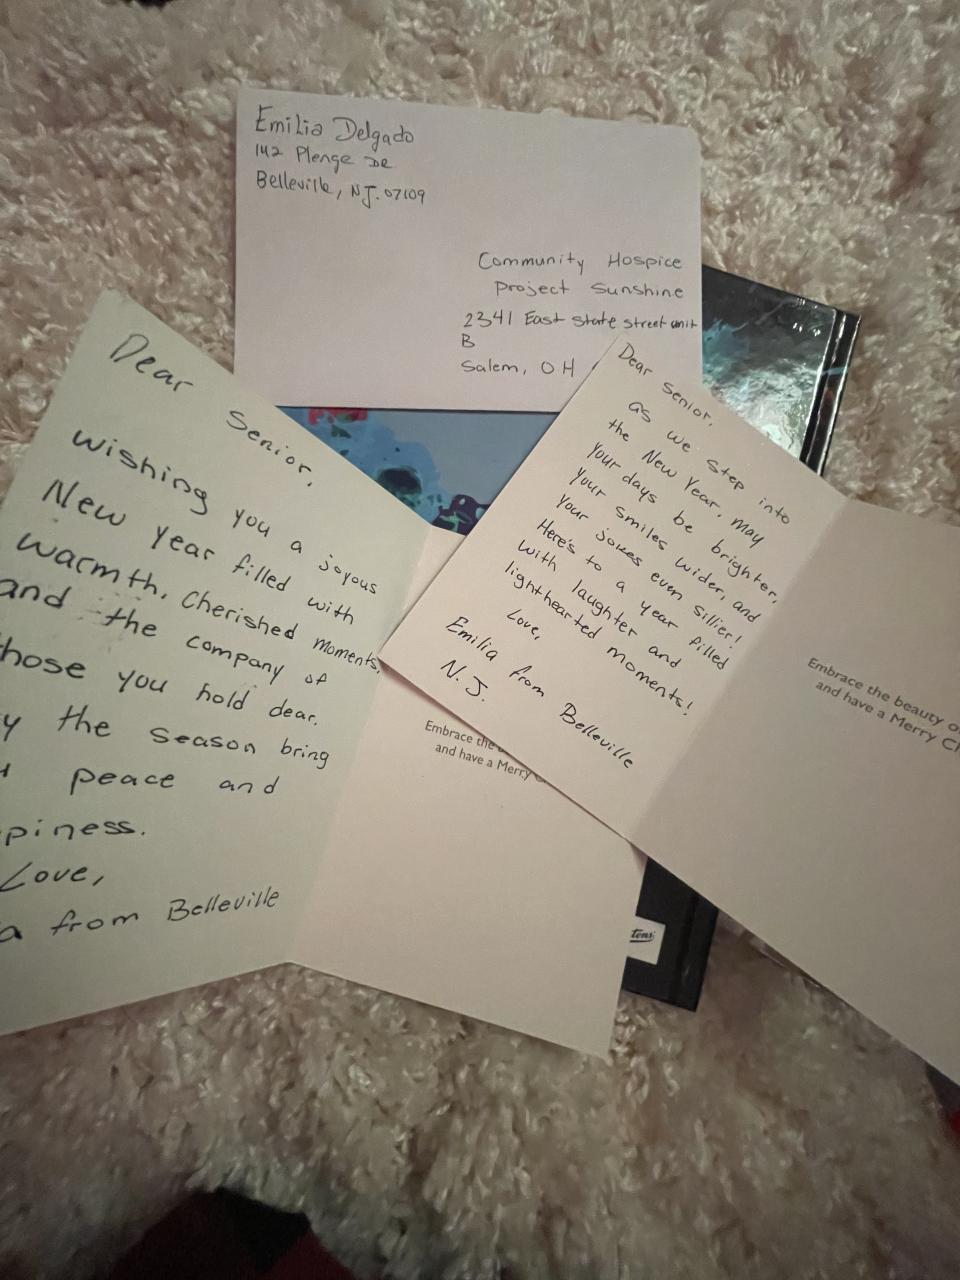 Emilia Delgado
142 Plenge DR
Belleville, NJ. 07109
Community Hospice
Project Sunshine
2341 East State street unit
B
Salem, OH
Dear Senior,
Wishing you a joyous
New Year filled with
warmth, cherished moments,
and the company of
those you hold dear.
the season bring
peace and
piness.
Love,
a from Belleville
Embrace the
and have a Merry
Dear Senior,
as we step into
the New Year, may
your days be brighter,
your smiles wider, and
your jokes even sillier!
Here's to a year filled
with laughter and
lighthearted moments!
Love,
Emilia from Belleville
N.J.
Embrace the beauty
and have a Merry